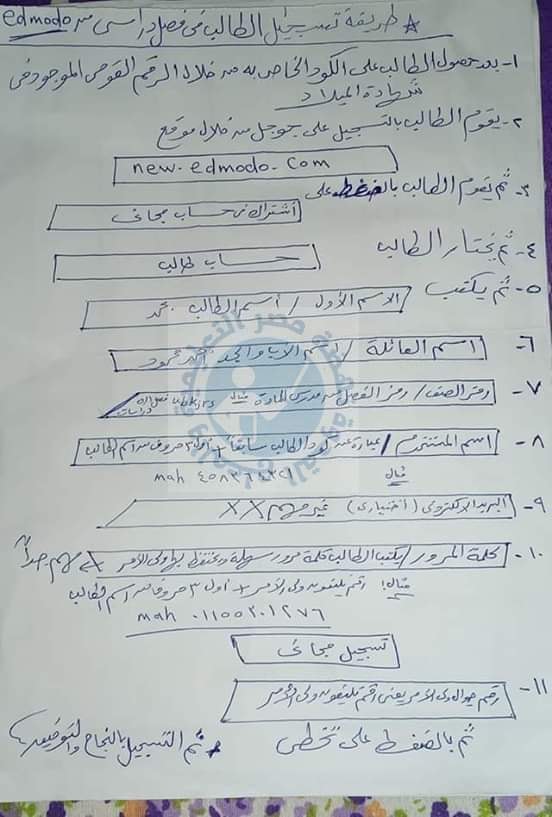 * طريقة تسجيل الطالب فى فصل دراسى من edmodo
١- بعد حصول الطالب على الكود الخاص به من خلال الرقم القومى الموجود فى
شهادة الميلاد
٢- يقوم الطالب بالتسجيل على جوجل من خلال موقع
new.edmodo.com
٣- ثم يقوم الطالب بالضغط على
اشترك فى حساب مجانى
٤- ثم يختار الطالب
حساب طالب
٥- ثم يكتب
الاسم الأول / اسم الطالب محمد
٦- اسم العائلة / اسم الأب والجد أحمد محمود
٧- رمز الصف / رمز الفصل من مدرس المادة مثال
٨- اسم المستخدم / عبارة عن كود الطالب سابقاً + أول ٣ حروف من اسم الطالب
مثال
mah
٩- البريد الالكترونى (اختيارى) غير مهم XX
١٠- كلمة المرور / يكتب الطالب كلمة مرور سهلة ويحتفظ بها ولى الأمر * مهم جداً
مثال: رقم تليفون ولى الأمر + أول ٣ حروف من اسم الطالب
mah ٠١١٥٥٢٠١٢٧٦
تسجيل مجانى
١١- رقم جوال ولى الأمر يعنى رقم تليفون ولى الأمر
ثم بالضغط على تخطى
* تم التسجيل بالنجاح والتوفيق